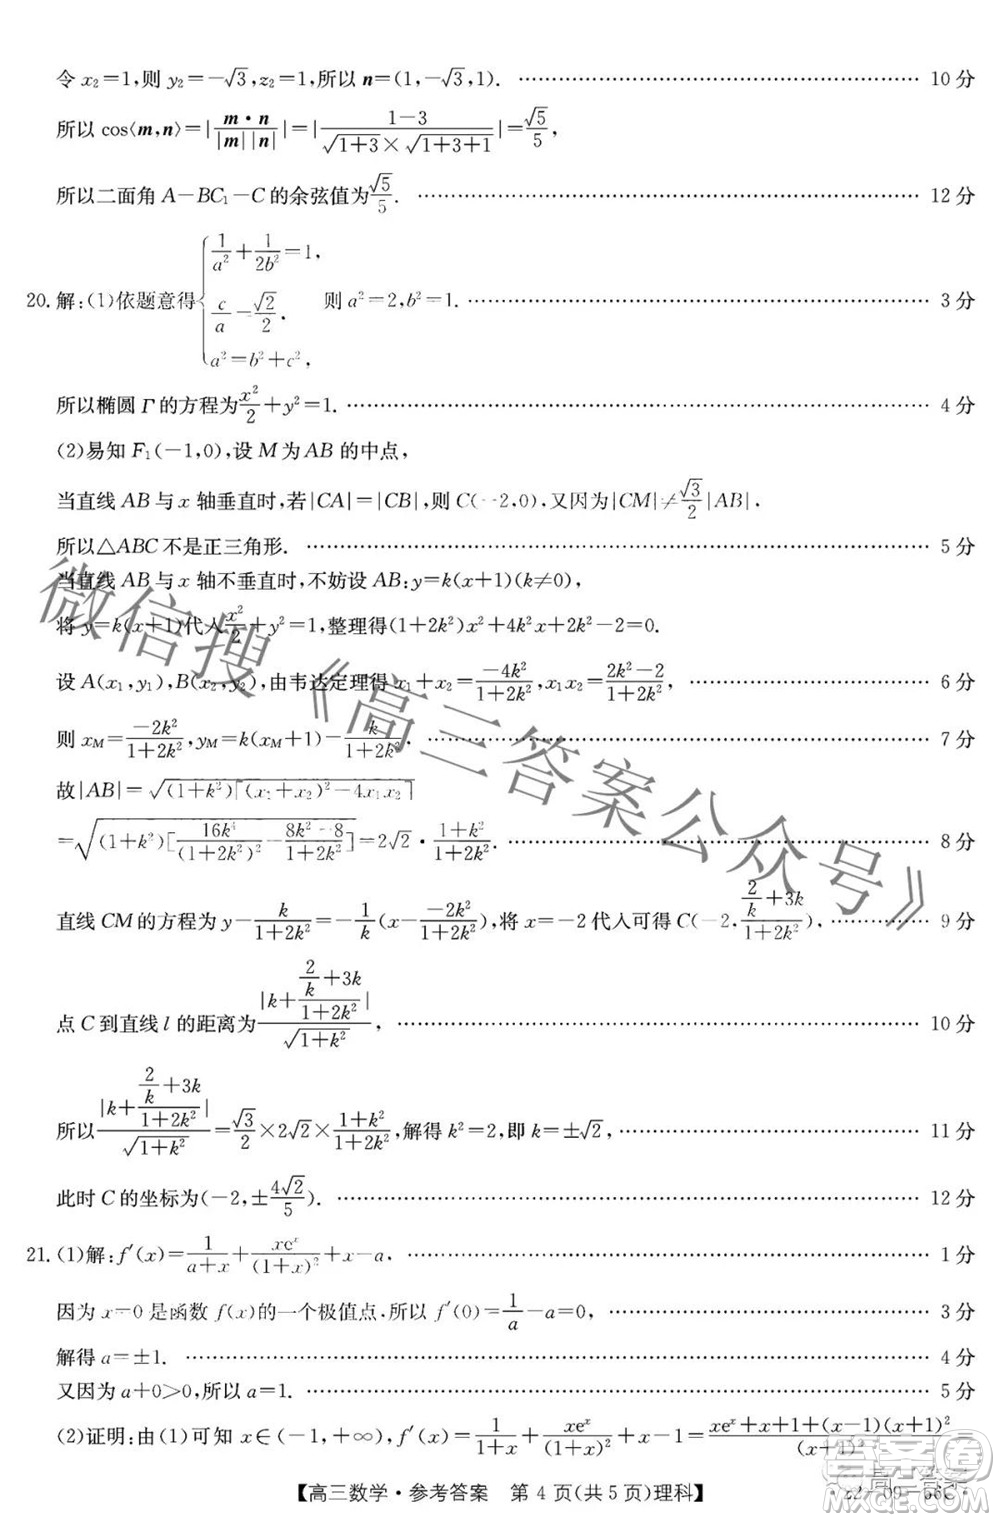 令 x₂=1,则 y₂=-√3,z₂=1,所以 n=(1,-√3,1). ………… 10 分
所以 cos⟨m,n⟩=|m·n/(|m||n|)|=|(1-3)/(√(1+3)×√(1+3+1))|=√5/5,
所以二面角 A-BC₁-C 的余弦值为√5/5. ………… 12 分
20. 解:(1)依题意得{1/a²+1/(2b²)=1, c/a=√2/2. a²=b²+c², 则 a²=2,b²=1. ………… 3 分
所以椭圆 Γ 的方程为x²/2+y²=1. ………… 4 分
(2)易知 F₁(-1,0),设 M 为 AB 的中点,
当直线 AB 与 x 轴垂直时,若|CA|=|CB|,则 C(-2,0),又因为|CM|≠√3/2|AB|.
所以△ABC 不是正三角形. ………… 5 分
当直线 AB 与 x 轴不垂直时,不妨设 AB:y=k(x+1)(k≠0),
将 y=k(x+1)代入x²/2+y²=1,整理得(1+2k²)x²+4k²x+2k²-2=0.
设 A(x₁,y₁),B(x₂,y₂),由韦达定理得 x₁+x₂=-4k²/(1+2k²),x₁x₂=(2k²-2)/(1+2k²), ………… 6 分
则 x_M=-2k²/(1+2k²),y_M=k(x_M+1)=k/(1+2k²). ………… 7 分
故|AB|=√((1+k²)[(x₁+x₂)²-4x₁x₂])
=√((1+k²)[16k⁴/(1+2k²)²-(8k²-8)/(1+2k²)])=2√2·(1+k²)/(1+2k²). ………… 8 分
直线 CM 的方程为 y-k/(1+2k²)=-1/k(x--2k²/(1+2k²)),将 x=-2 代入可得 C(-2,(2/k+3k)/(1+2k²)), ………… 9 分
点 C 到直线 l 的距离为|k+(2/k+3k)/(1+2k²)|/√(1+k²), ………… 10 分
所以|k+(2/k+3k)/(1+2k²)|/√(1+k²)=√3/2×2√2×(1+k²)/(1+2k²),解得 k²=2,即 k=±√2, ………… 11 分
此时 C 的坐标为(-2,±4√2/5). ………… 12 分
21. (1)解:f′(x)=1/(a+x)+xeˣ/(1+x)²+x-a, ………… 1 分
因为 x=0 是函数 f(x)的一个极值点,所以 f′(0)=1/a-a=0, ………… 3 分
解得 a=±1. ………… 4 分
又因为 a+0>0,所以 a=1. ………… 5 分
(2)证明:由(1)可知 x∈(-1,+∞),f′(x)=1/(1+x)+xeˣ/(1+x)²+x-1=(xeˣ+x+1+(x-1)(x+1)²)/(x+1)²
【高三数学·参考答案 第 4 页(共 5 页)理科】
·22-09-56C·
微信搜《高三答案公众号》
答案圈